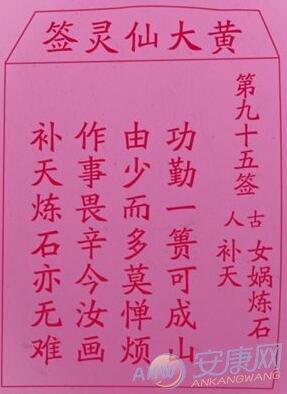 黄大仙灵签
第九十五签
古人
女娲炼石
补天
功勤一篑可成山
由少而多莫惮烦
作事畏辛今汝画
补天炼石亦无难
安康网
ANKANGWANG